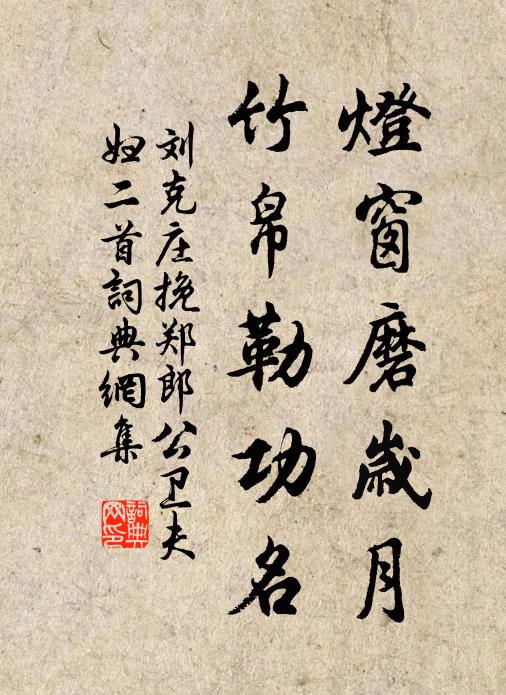 燈窗磨歲月
竹帛勒功名
刘克庄挽郑郎公卫夫
妇二首詞典網集
詞典
网印